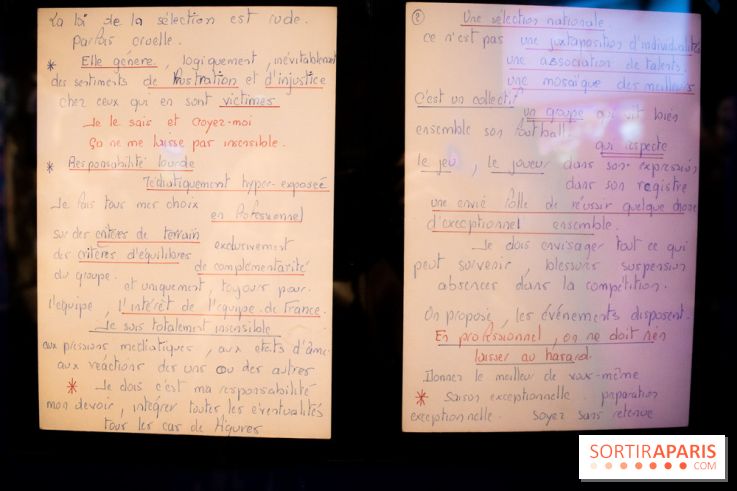 La loi de la sélection est rude.
parfois cruelle.
* Elle génère, logiquement, inévitablement
des sentiments de frustration et d'injustice
chez ceux qui en sont victimes
Je le sais et croyez-moi
Ça ne me laisse pas insensible.
* Responsabilité lourde
Médiatiquement hyper-exposée
Je fais tous mes choix
en Professionnel
sur des critères de terrain
exclusivement
des critères d'équilibres
de complémentarité
du groupe.
et uniquement, toujours pour
l'équipe, l'intérêt de l'équipe de France.
Je suis totalement insensible
aux pressions médiatiques, aux états d'âme
aux réactions des uns ou des autres
* Je dois c'est ma responsabilité
mon devoir, intégrer toutes les éventualités
tous les cas de figures
2
Une sélection nationale
ce n'est pas une juxtaposition d'individualités
une association de talents.
une mosaïque des meilleurs
C'est un collectif
un groupe qui vit bien
ensemble son football.
qui respecte
le jeu, le joueur dans son expression
dans son registre
une envie folle de réussir quelque chose
d'exceptionnel ensemble.
Je dois envisager tout ce qui
peut survenir, blessures suspension
absences dans la compétition.
On propose, les événements disposent.
En professionnel, on ne doit rien
laisser au hasard
Donnez le meilleur de vous-même
* Saison exceptionnelle. préparation
exceptionnelle. soyez sans retenue
SORTIRAPARIS
.COM